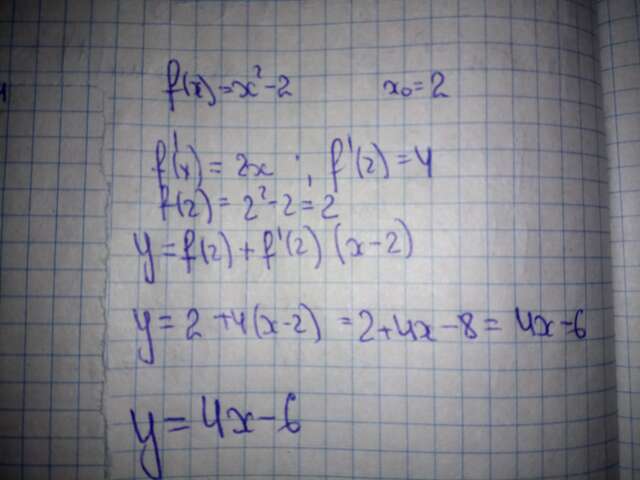 f(x)=x²-2 x₀=2
f'(x)=2x ; f'(2)=4
f(2)=2²-2=2
y=f(2)+f'(2)(x-2)
y=2+4(x-2)=2+4x-8=4x-6
y=4x-6